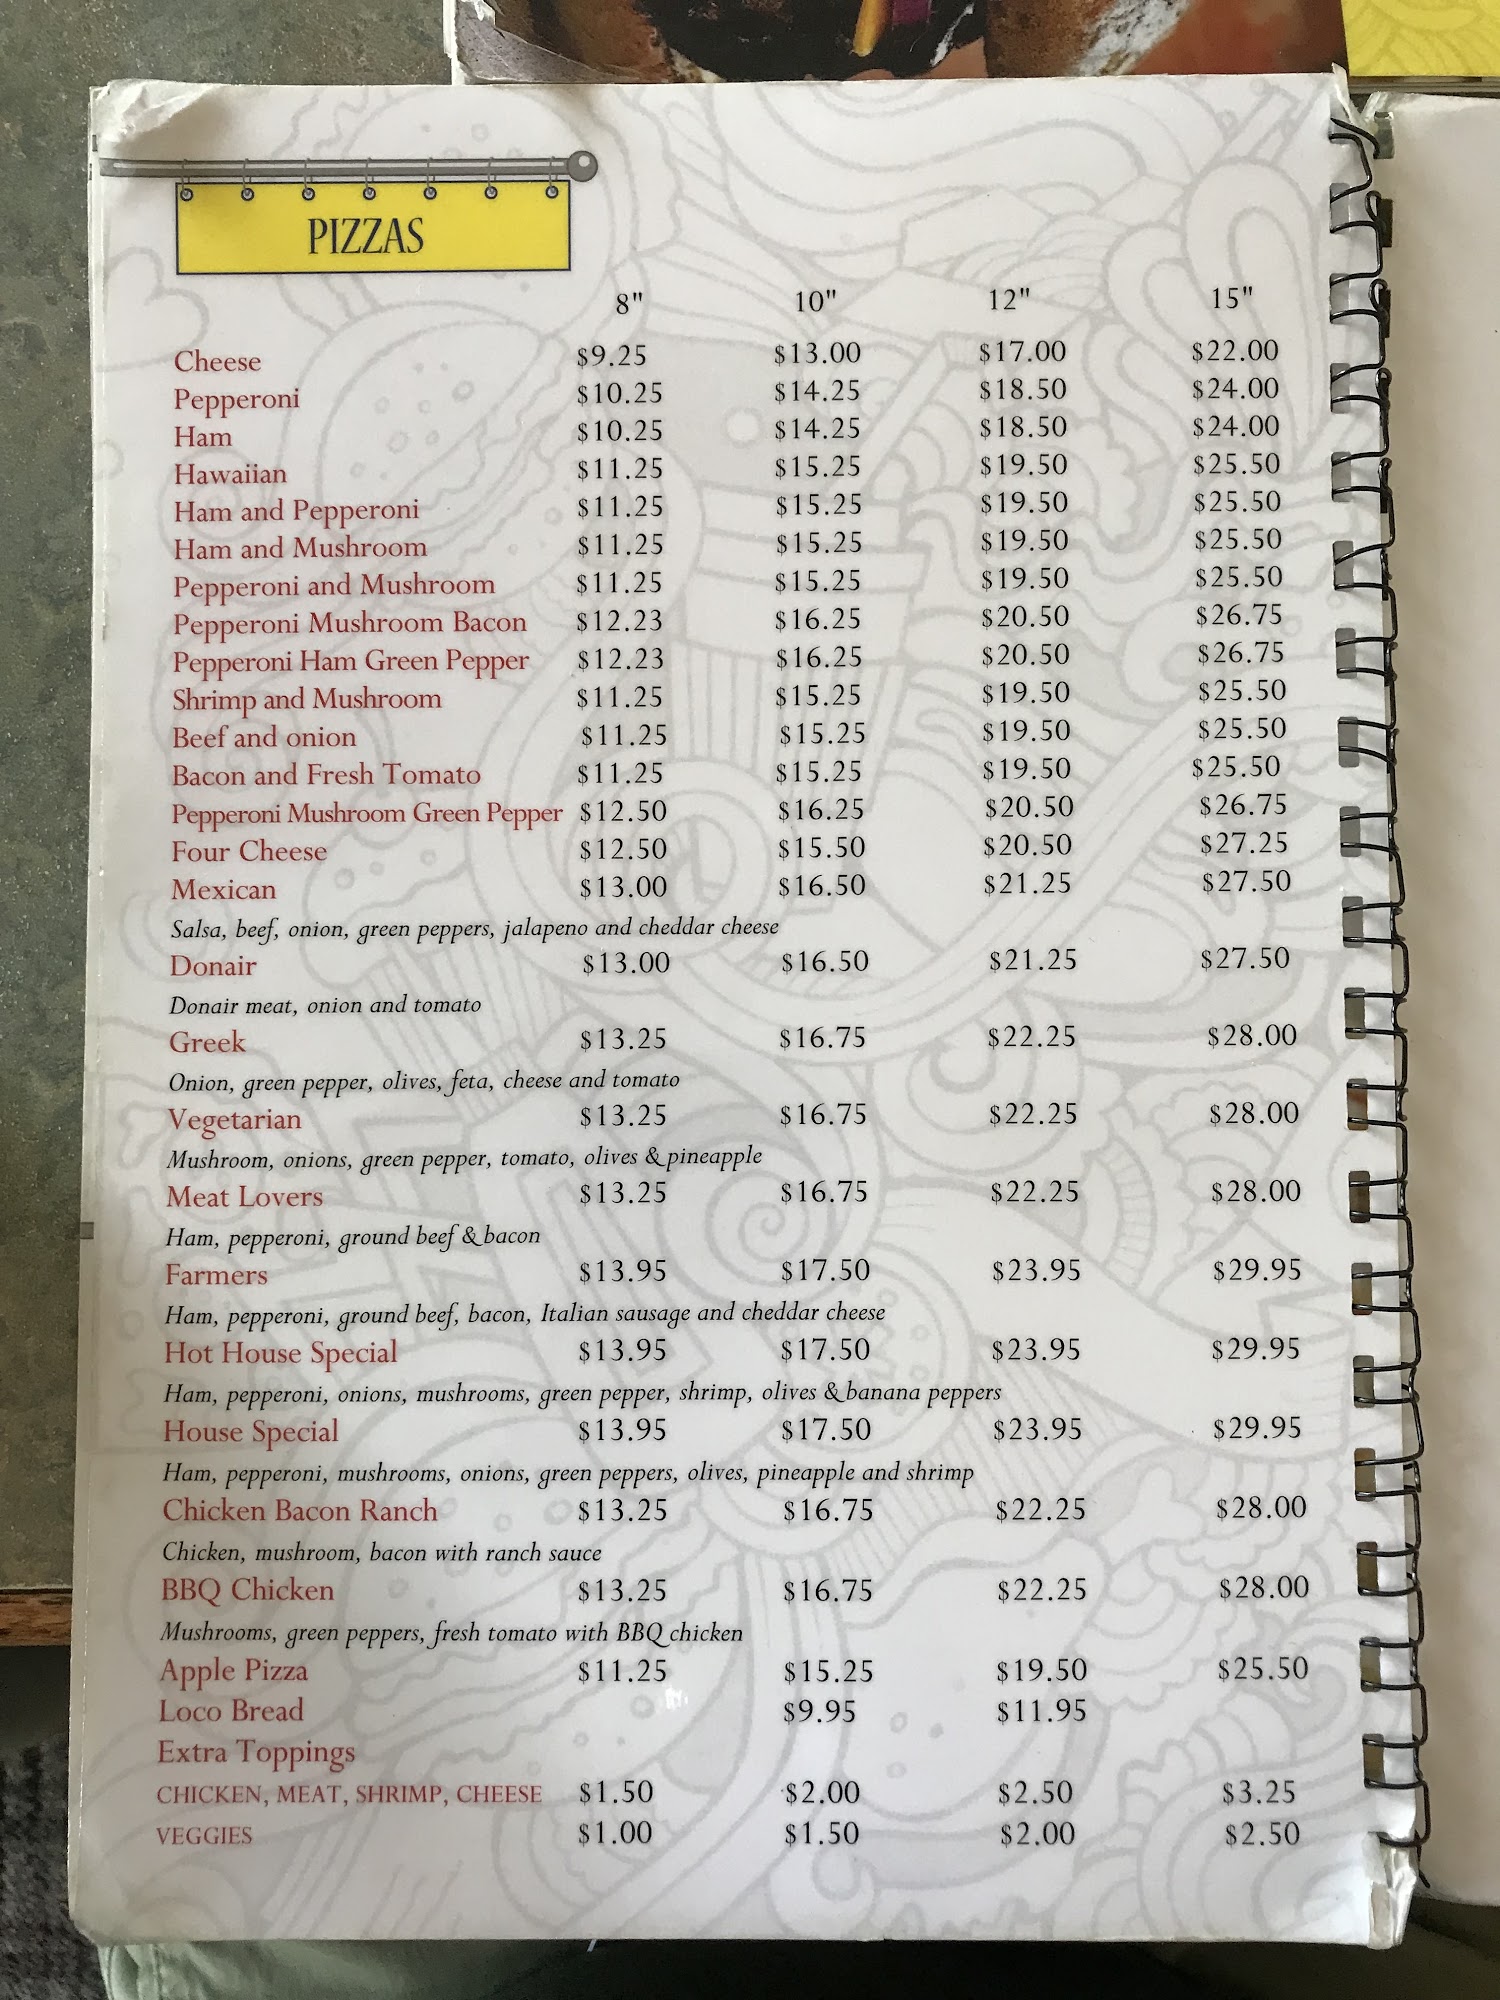 PIZZAS
8" 10" 12" 15"
Cheese $9.25 $13.00 $17.00 $22.00
Pepperoni $10.25 $14.25 $18.50 $24.00
Ham $10.25 $14.25 $18.50 $24.00
Hawaiian $11.25 $15.25 $19.50 $25.50
Ham and Pepperoni $11.25 $15.25 $19.50 $25.50
Ham and Mushroom $11.25 $15.25 $19.50 $25.50
Pepperoni and Mushroom $11.25 $15.25 $19.50 $25.50
Pepperoni Mushroom Bacon $12.23 $16.25 $20.50 $26.75
Pepperoni Ham Green Pepper $12.23 $16.25 $20.50 $26.75
Shrimp and Mushroom $11.25 $15.25 $19.50 $25.50
Beef and onion $11.25 $15.25 $19.50 $25.50
Bacon and Fresh Tomato $11.25 $15.25 $19.50 $25.50
Pepperoni Mushroom Green Pepper $12.50 $16.25 $20.50 $26.75
Four Cheese $12.50 $15.50 $20.50 $27.25
Mexican $13.00 $16.50 $21.25 $27.50
Salsa, beef, onion, green peppers, jalapeno and cheddar cheese
Donair $13.00 $16.50 $21.25 $27.50
Donair meat, onion and tomato
Greek $13.25 $16.75 $22.25 $28.00
Onion, green pepper, olives, feta, cheese and tomato
Vegetarian $13.25 $16.75 $22.25 $28.00
Mushroom, onions, green pepper, tomato, olives & pineapple
Meat Lovers $13.25 $16.75 $22.25 $28.00
Ham, pepperoni, ground beef & bacon
Farmers $13.95 $17.50 $23.95 $29.95
Ham, pepperoni, ground beef, bacon, Italian sausage and cheddar cheese
Hot House Special $13.95 $17.50 $23.95 $29.95
Ham, pepperoni, onions, mushrooms, green pepper, shrimp, olives & banana peppers
House Special $13.95 $17.50 $23.95 $29.95
Ham, pepperoni, mushrooms, onions, green peppers, olives, pineapple and shrimp
Chicken Bacon Ranch $13.25 $16.75 $22.25 $28.00
Chicken, mushroom, bacon with ranch sauce
BBQ Chicken $13.25 $16.75 $22.25 $28.00
Mushrooms, green peppers, fresh tomato with BBQ chicken
Apple Pizza $11.25 $15.25 $19.50 $25.50
Loco Bread $9.95 $11.95
Extra Toppings
CHICKEN, MEAT, SHRIMP, CHEESE $1.50 $2.00 $2.50 $3.25
VEGGIES $1.00 $1.50 $2.00 $2.50